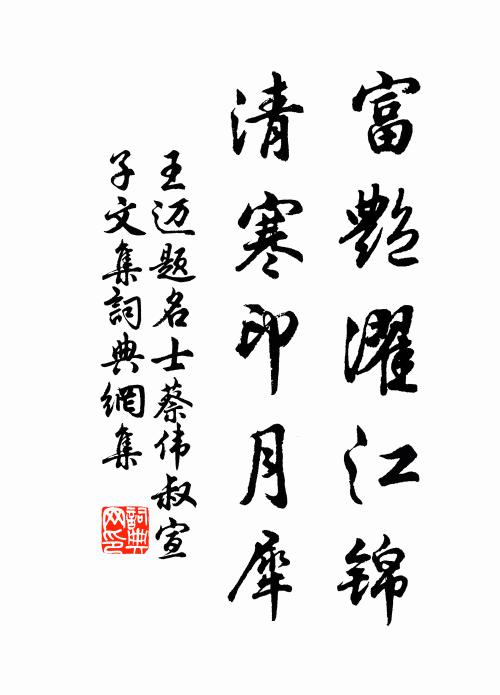 富艷濯江錦
清寒印月犀
王迈题名士蔡伟叔宣
子文集詞典網集
詞典网印